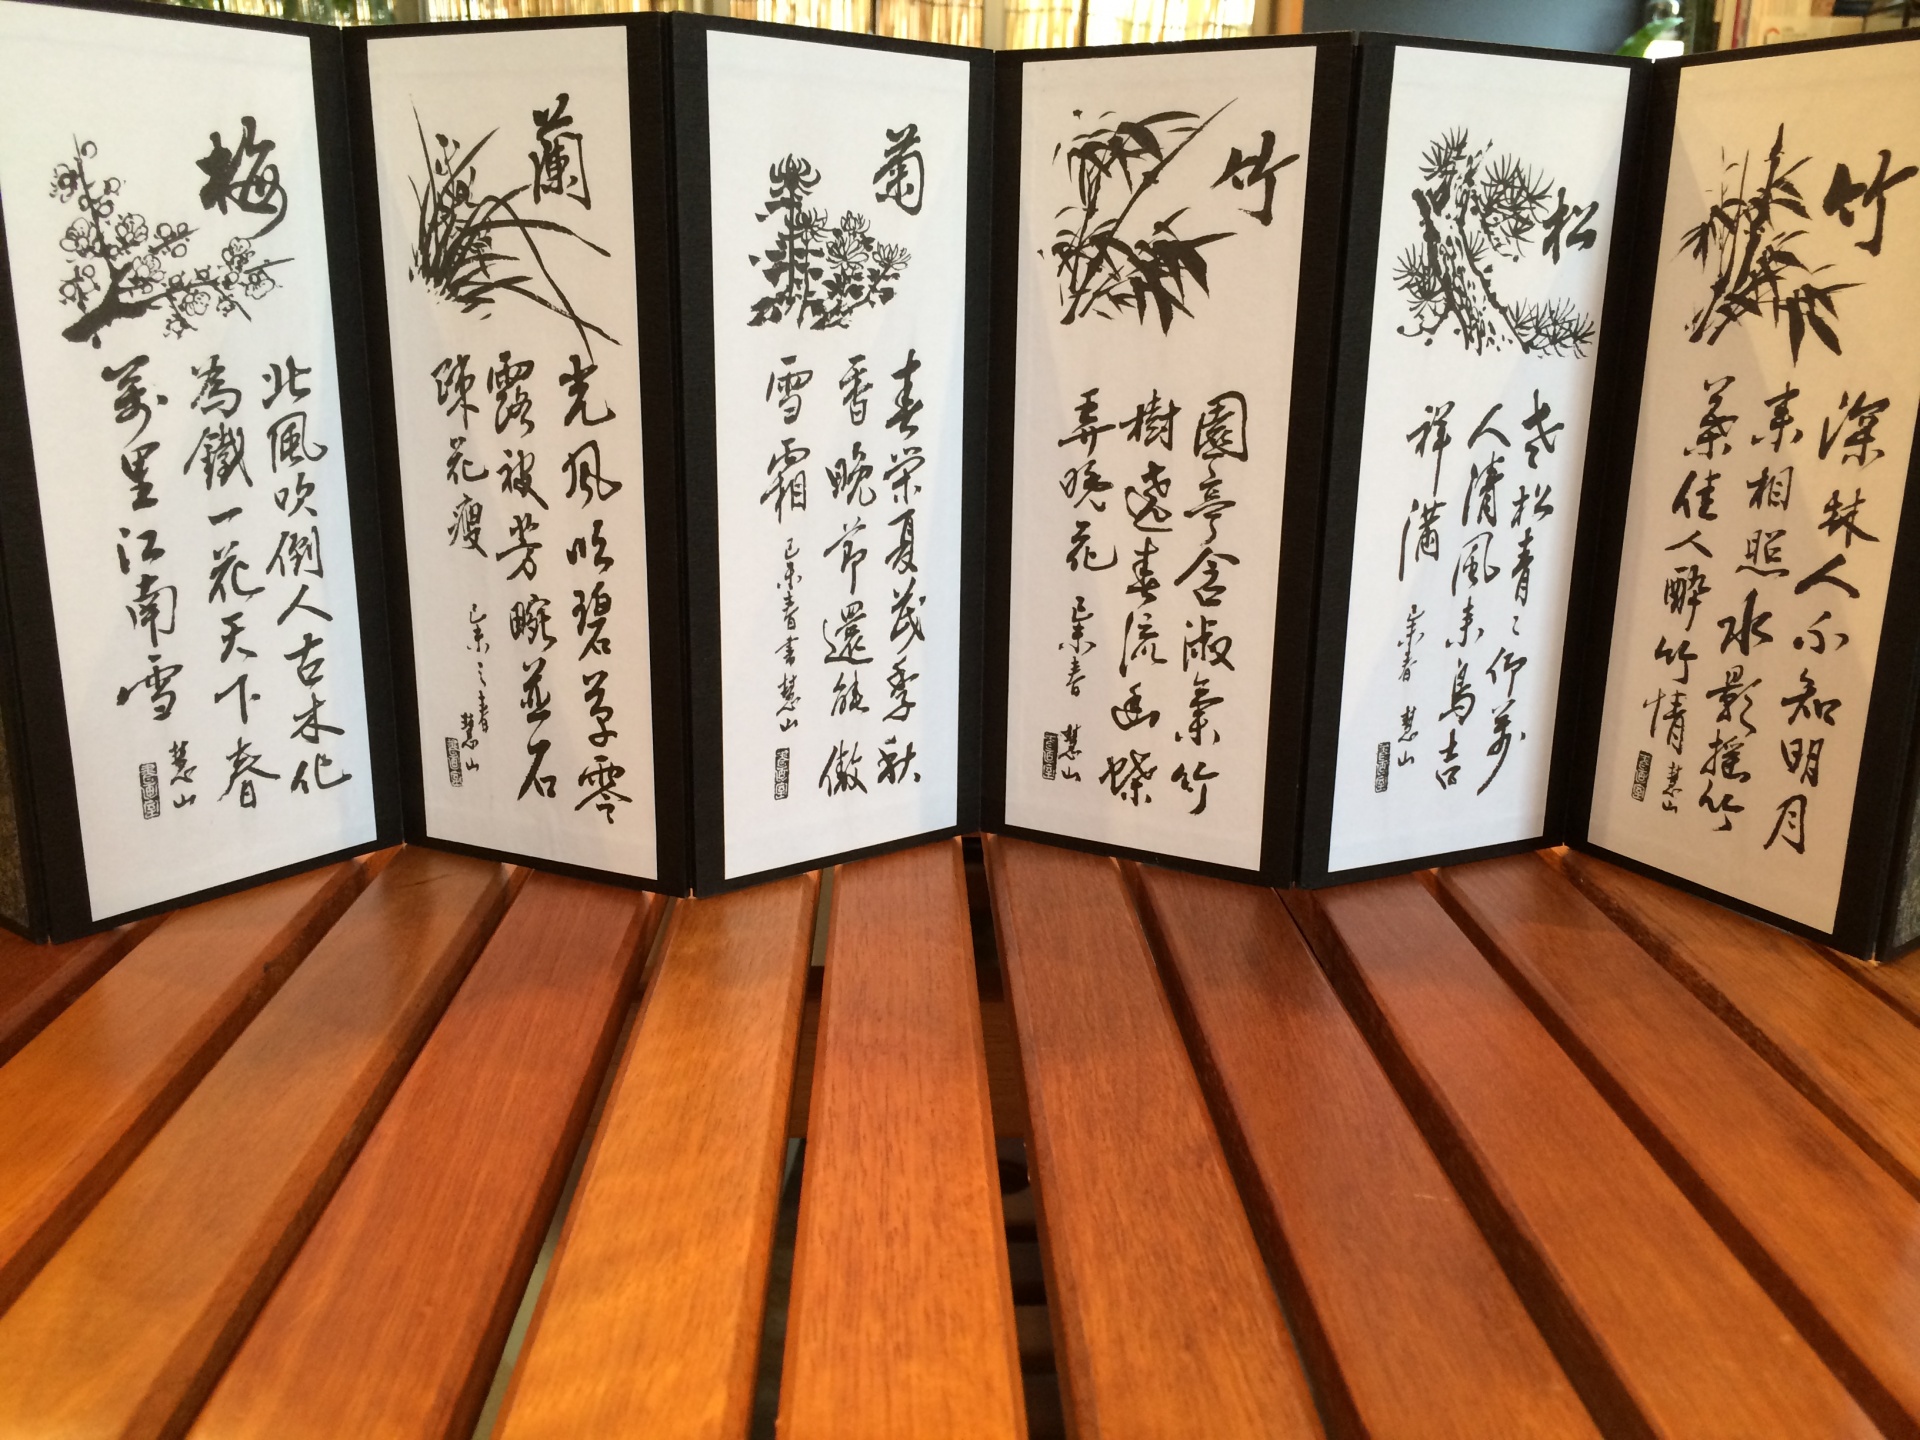 梅
北風吹倒人古木化
為鐵一花天下春
萬里江南雪
慧山
蘭
光風吹碧草零
露被芳畹並石
疎花瘦
己未之春
慧山
菊
春榮夏茂季秋
香晚節還能傲
雪霜
己未春書慧山
竹
園亭含淑氣竹
樹遶春流幽蝶
弄晚花
己未春
慧山
松
老松青〻仰萬
人清風來鳥吉
祥滿
未春
慧山
竹
深林人不知明月
來相照水影搖竹
葉佳人醉竹情
慧山